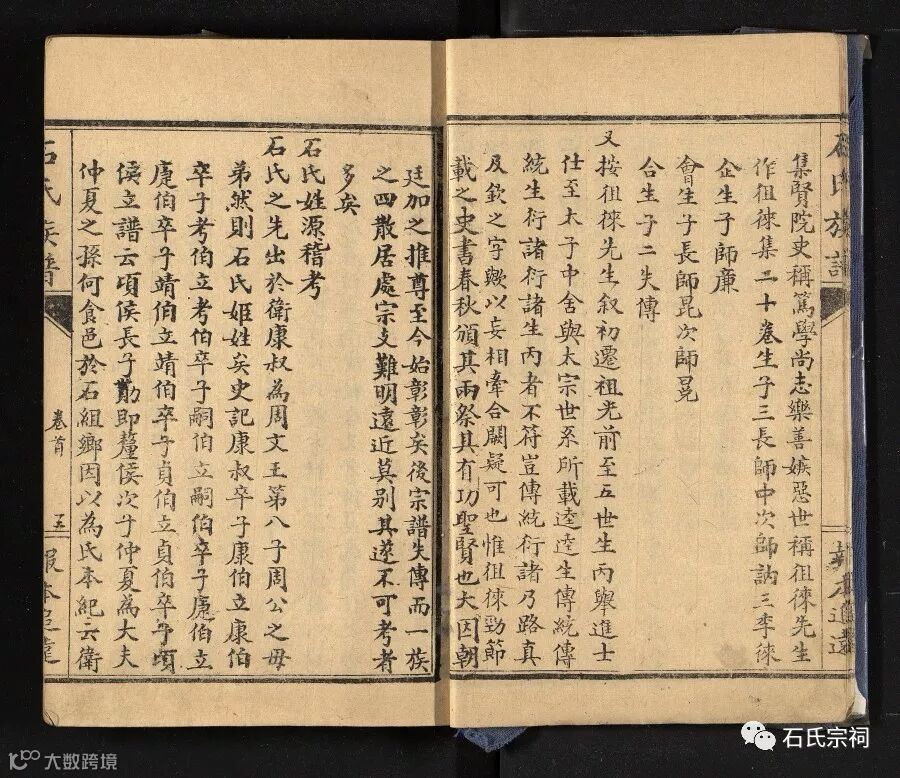 石氏族譜
集賢院史稱篤學尚志樂善嫉惡世稱徂徠先生
作徂徠集二十卷生子三長師中次師訥三季徠
企生子師廉
會生子長師昆次師晃
合生子二失傳
又按徂徠先生叙初遷祖光前至五世生丙舉進士
仕至太子中舍與太宗世系所載逵逵生傳統傳
統生衍諸衍諸生丙者不符豈傳統衍諸乃路真
及欽之字歟以妄相牽合闕疑可也惟徂徠勁節
載之史書春秋頒其兩祭其有功聖賢也大因朝
廷加之推尊至今始彰彰矣後宗譜失傳而一族
之四散居處宗支難明遠近莫別其遂不可考者
多矣
石氏姓源稽考
石氏之先出於衛康叔為周文王第八子周公之母
弟然則石氏姬姓矣史記康叔卒子康伯立康伯
卒子考伯立考伯卒子嗣伯立嗣伯卒子庢伯立
庢伯卒子靖伯立靖伯卒子貞伯立貞伯卒子頃
侯立譜云頃侯長子勛即釐侯次子仲夏為大夫
仲夏之孫何食邑於石組鄉因以為氏本紀云衛
石氏族譜
卷首
五
報本追遠
石氏宗祠
大数跨境